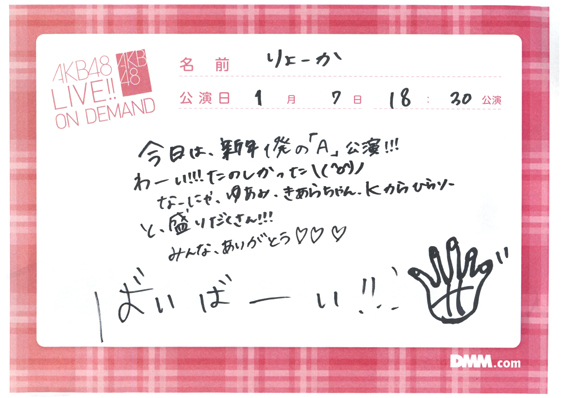 AKB48
LIVE!!
ON DEMAND
AKB
48
名前 りょーか
公演日 1月 7日 18:30 公演
今日は、新年1発の「A」公演!!!
わーい!!!たのしかった\(^o^)/
なーにゃ、ゆあみ、きあらちゃん、Kからひらりー
と、盛りだくさん!!!
みんな、ありがとう♡♡♡
ばいばーい!!!
DMM.com